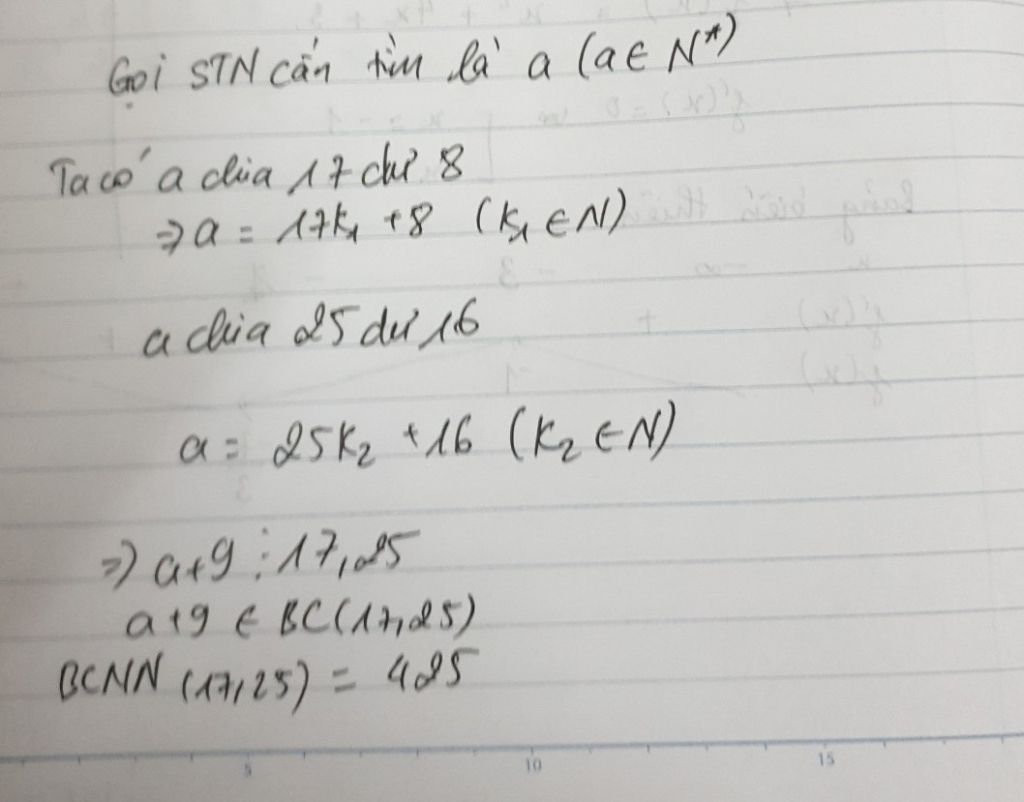 Gọi STN cần tìm là a (a ∈ N*)
Ta có a chia 17 dư 8
⇒ a = 17k₁ + 8 (k₁ ∈ N)
a chia 25 dư 16
a = 25k₂ + 16 (k₂ ∈ N)
⇒ a+9 ⋮ 17, 25
a+9 ∈ BC(17,25)
BCNN (17,25) = 425
5 10 15